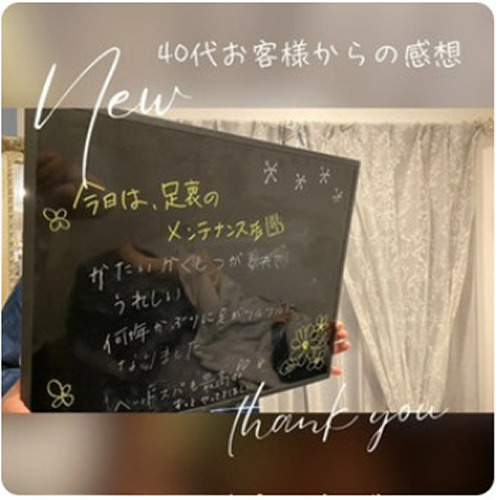 40代お客様からの感想
New
今日は、足裏の
メンテナンス
かたいかくしつが
うれしい
何年かぶりに足がツルツルに
なりました
ヘッドスパも最高
thank you